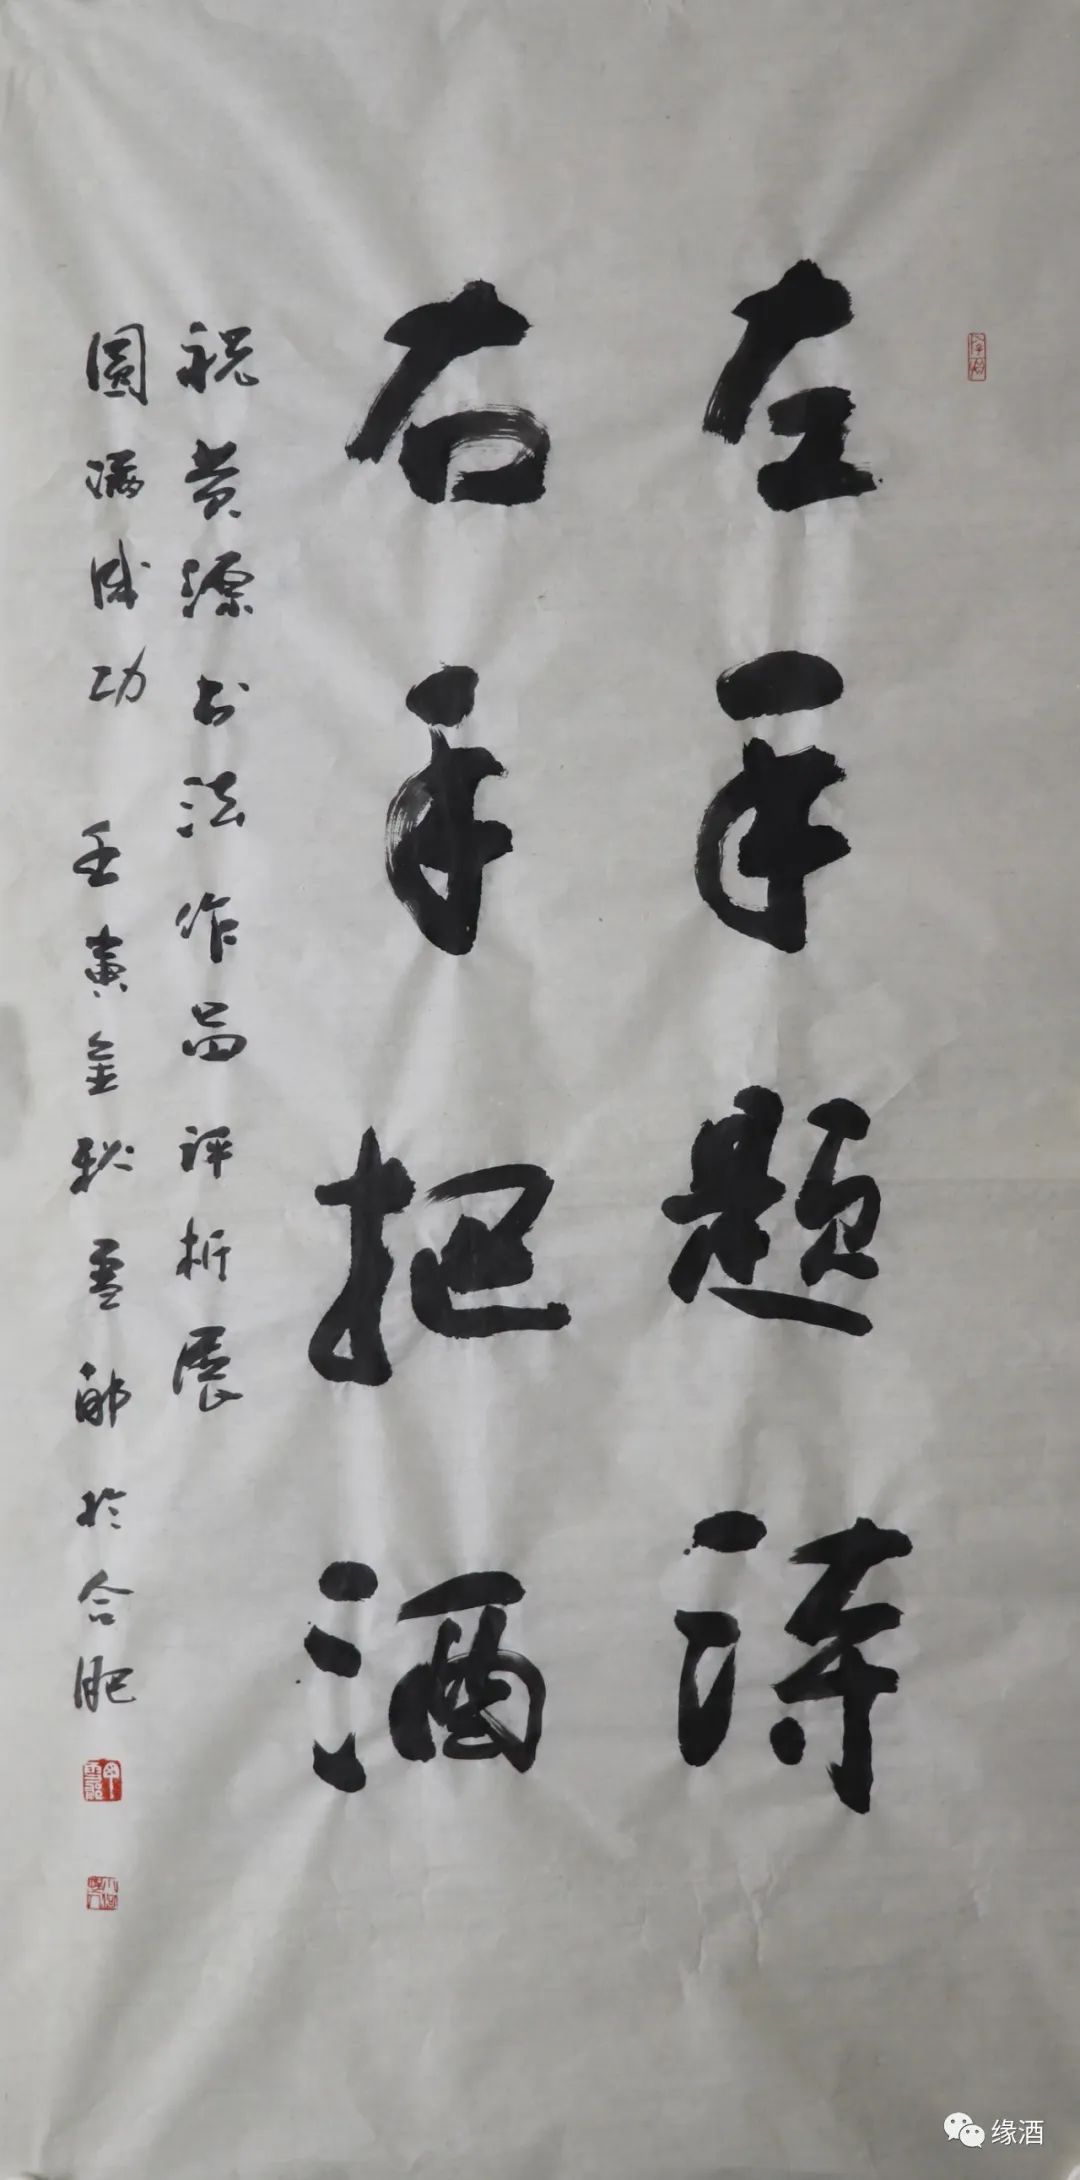 左手题诗
右手把酒
祝黄源书法作品评析展
圆满成功 壬寅金秋雪郎於合肥
缘酒